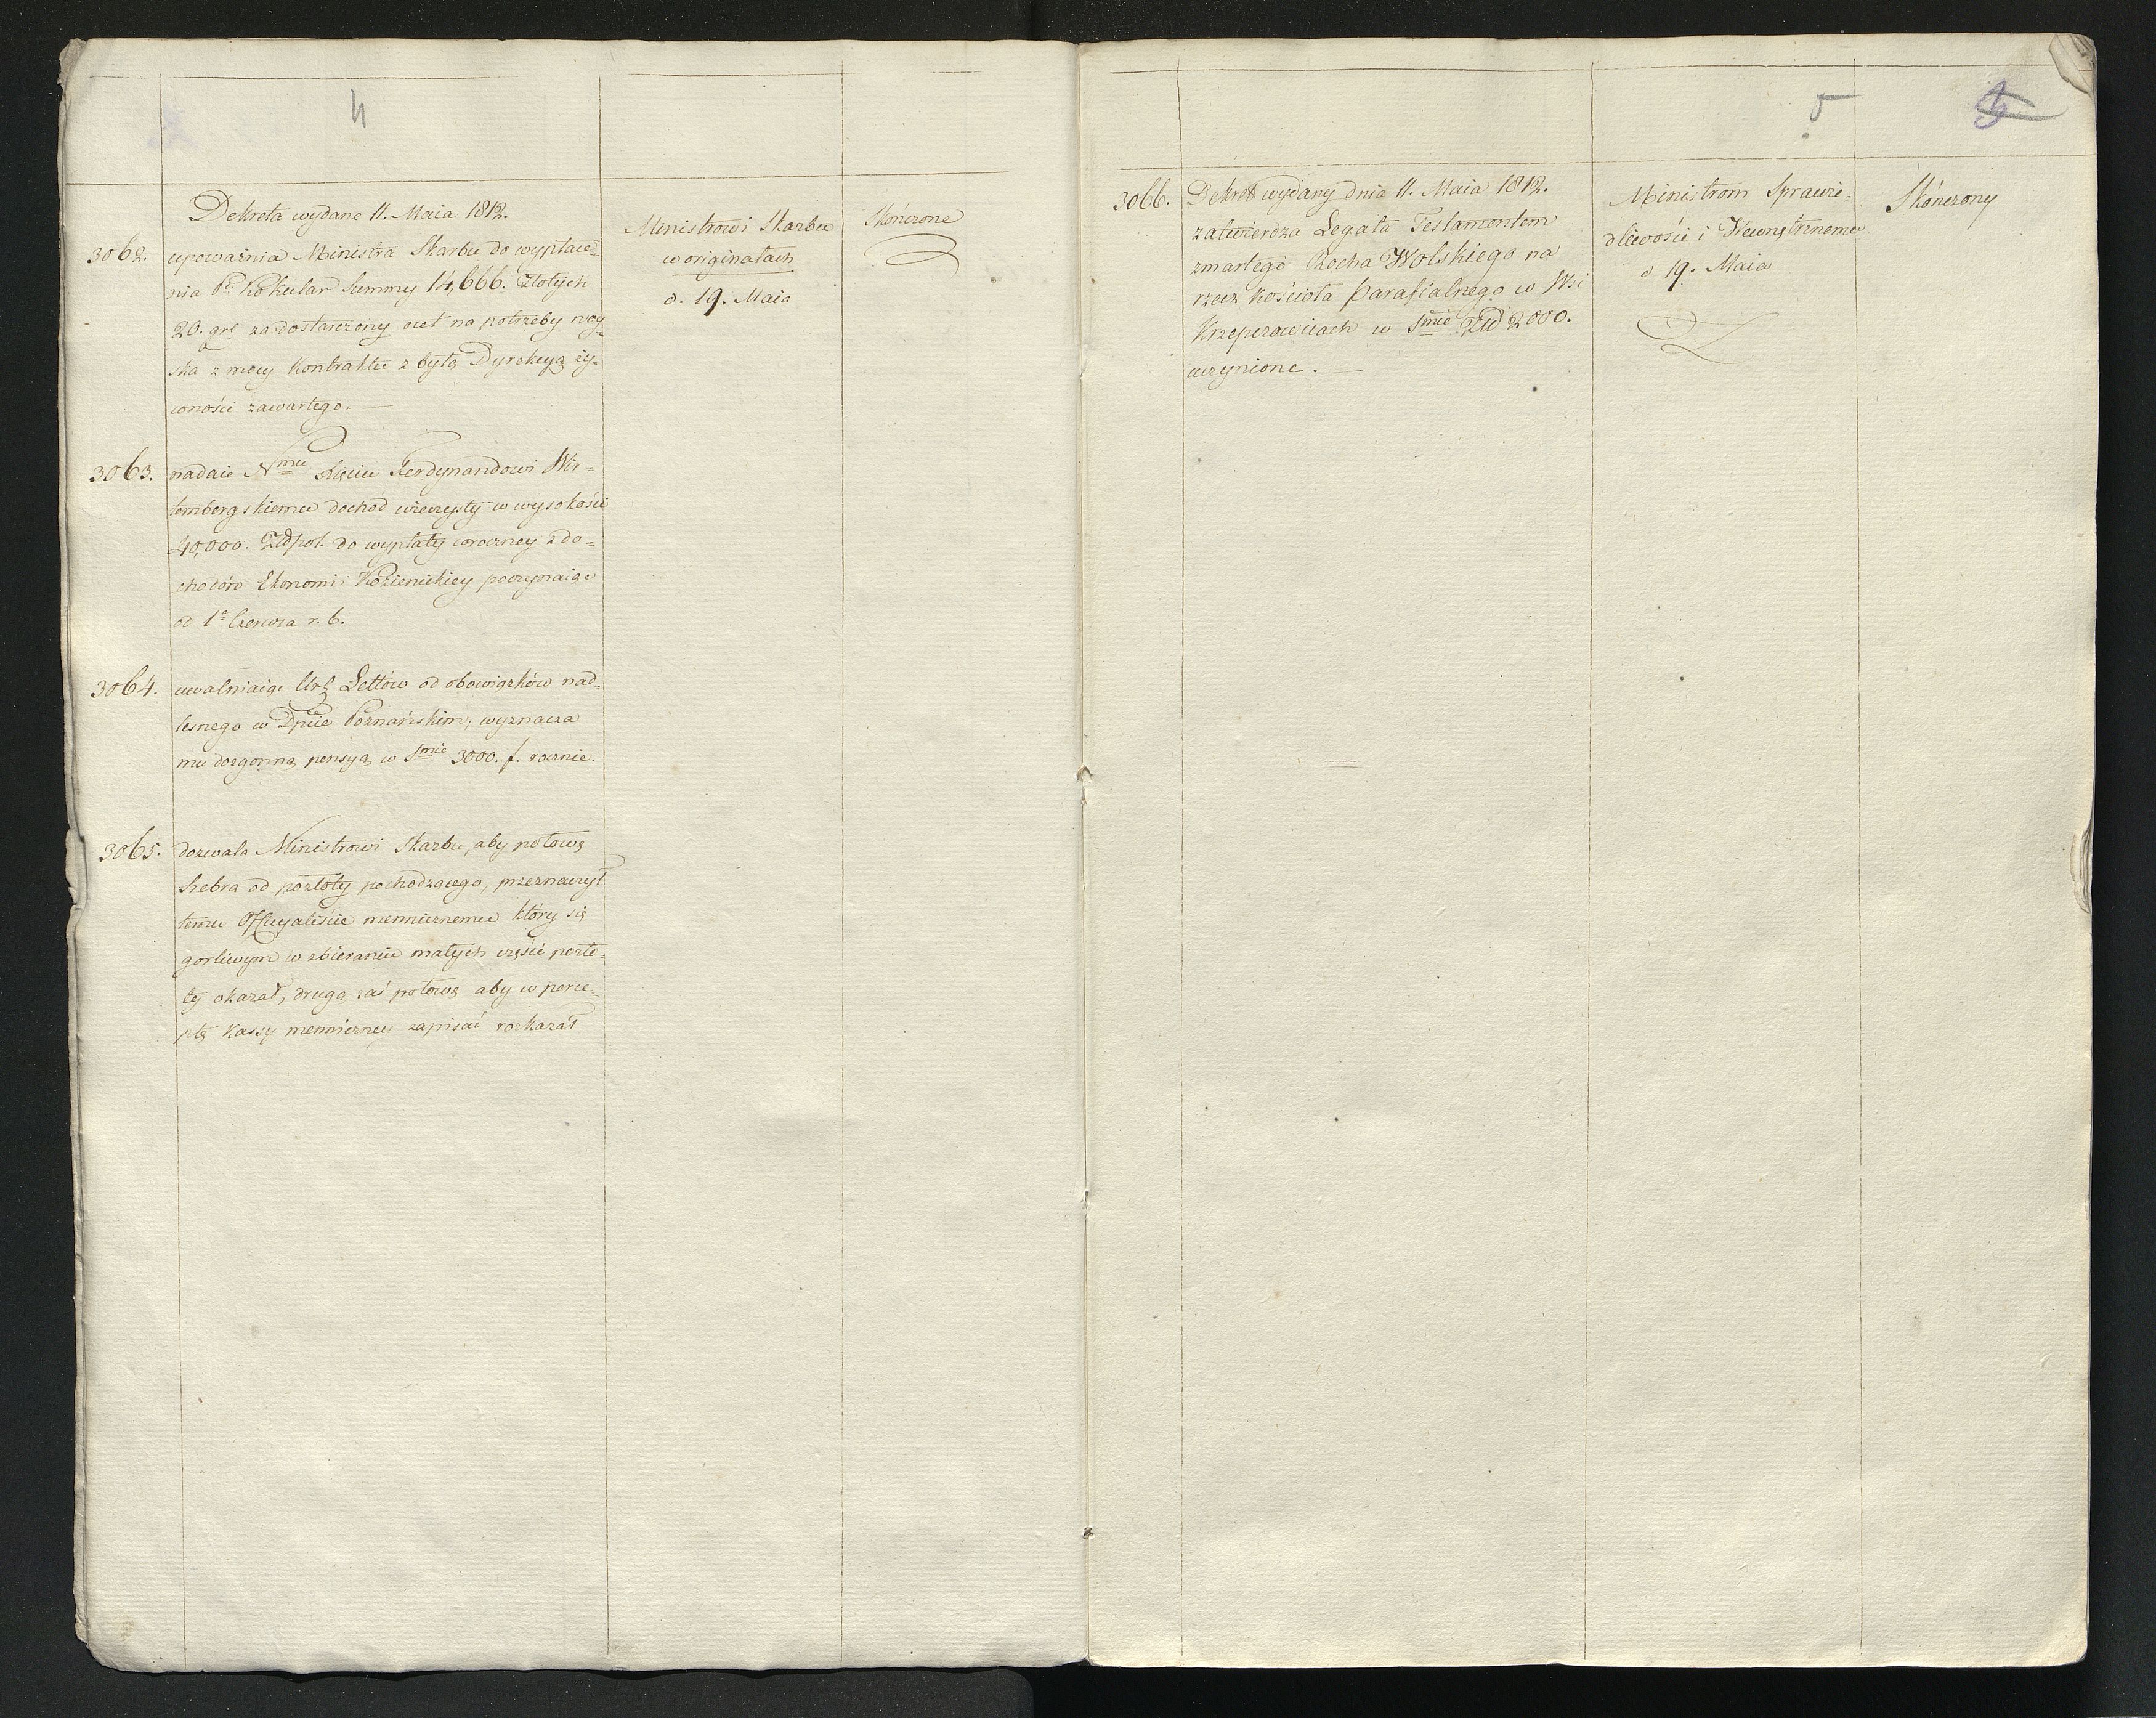 4
Dekreta wydane 11. Maia 1812.
3062. upoważnia Ministra Skarbu do wypłace=
nia Pr Kokular Summy 14,666. Złotych
20. gr za dostarczony ocet na potrzeby woy=
ska z mocy Kontraktu z byłą Dyrekcyą ży=
wności zawartego. —
Ministrowi Skarbu
w originałach
d. 19. Maia
Skończone
3063. nadaie Nmu Xięciu Ferdynandowi Wir=
tembergskiemu dochod wieczysty w wysokości
40,000. Złpol. do wypłaty coroczney z do=
chodów Ekonomii Kozienickiey poczynaiąc
od 1o Czerwca r. b.
3064. uwalniaiąc Ur Lettów od obowiązków nad=
leśnego w Dpcie Poznańskim, wyznacza
mu dozgonną pensyą w Smie 3000. f. rocznie.
3065. dozwala Ministrowi Skarbu, aby połowę
Srebra od pozłoty pochodzącego, przeznaczył
temu Officyaliście menniczemu który się
gorliwym w zbieraniu małych części pozło=
ty okazał, drugą zaś połowę aby w perce=
ptę Kassy menniczney zapisać rozkazał
5
3066. Dekret wydany dnia 11. Maia 1812.
zatwierdza Legata Testamentem
zmarłego Rocha Wolskiego na
rzecz Kościoła Parafialnego w Wsi
Krzepczowicach w Smie Złł 2000.
uczynione. —
Ministrom Sprawie=
dliwości i Wewnętrznemu
d 19. Maia
Skończony